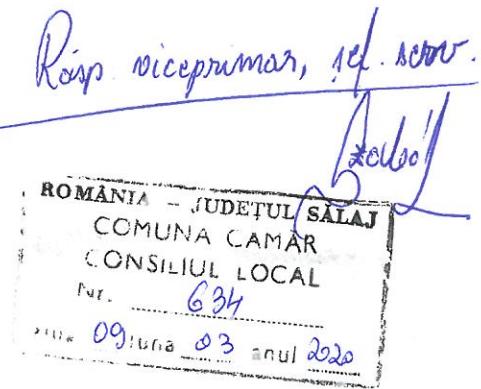 Răsp viceprimar, șef. serv.
Szabó
ROMÂNIA – JUDEȚUL SĂLAJ
COMUNA CAMĂR
CONSILIUL LOCAL
Nr. 634
Ziua 09 luna 03 anul 2020